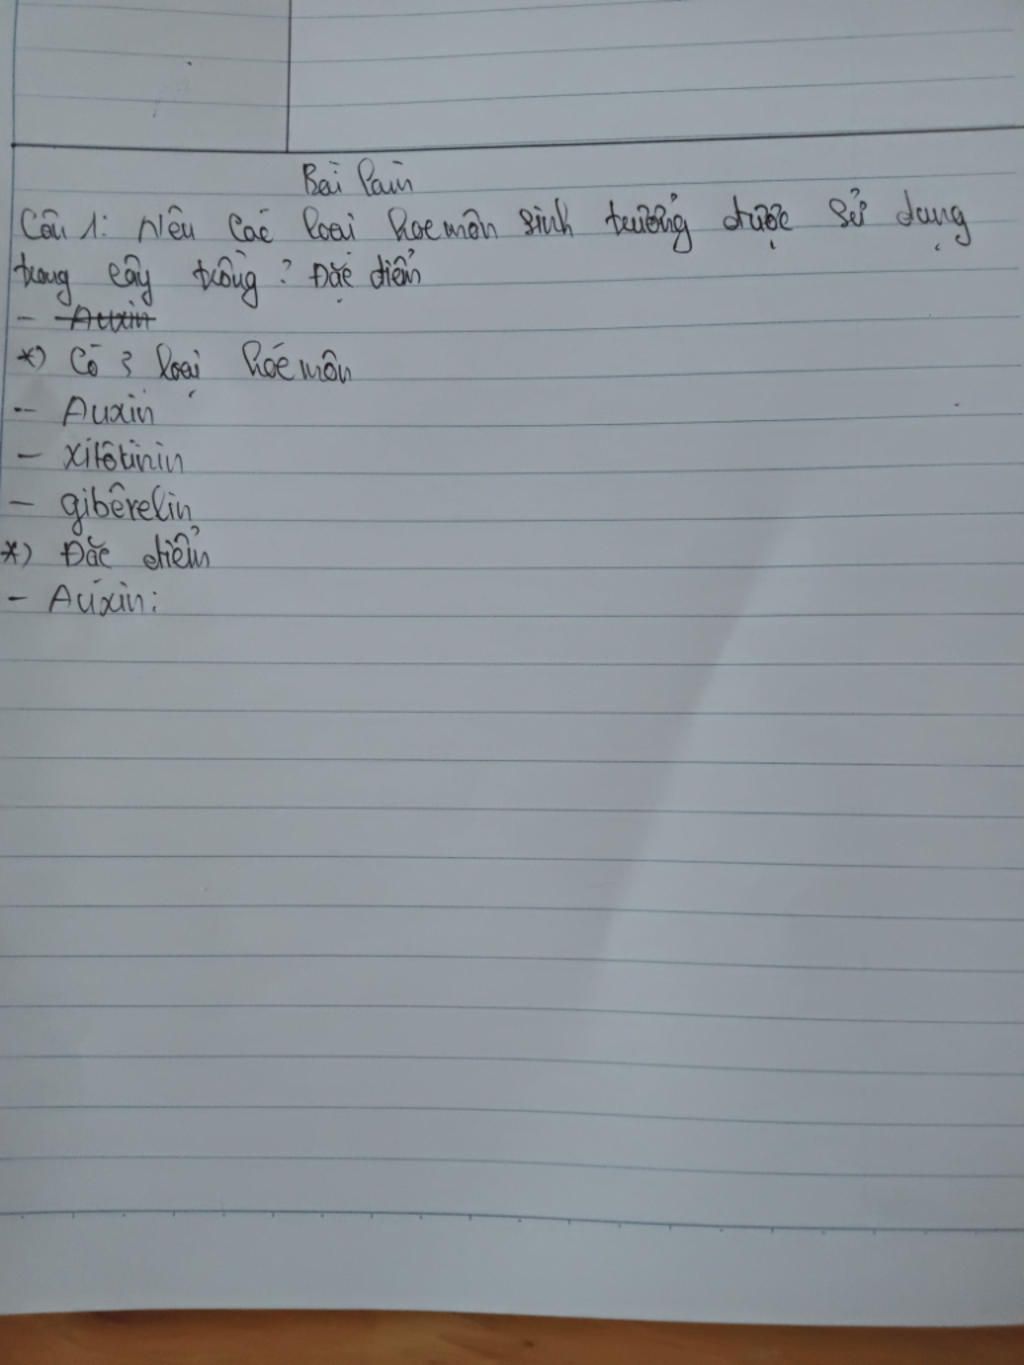 Bài làm
Câu 1: Nêu các loại hoocmôn sinh trưởng được sử dụng
trong cây trồng? Đặc điểm
- Auxin
*) Có 3 loại hoócmôn
- Auxin
- xitôkinin
- gibêrelin
*) Đặc điểm
- Auxin: